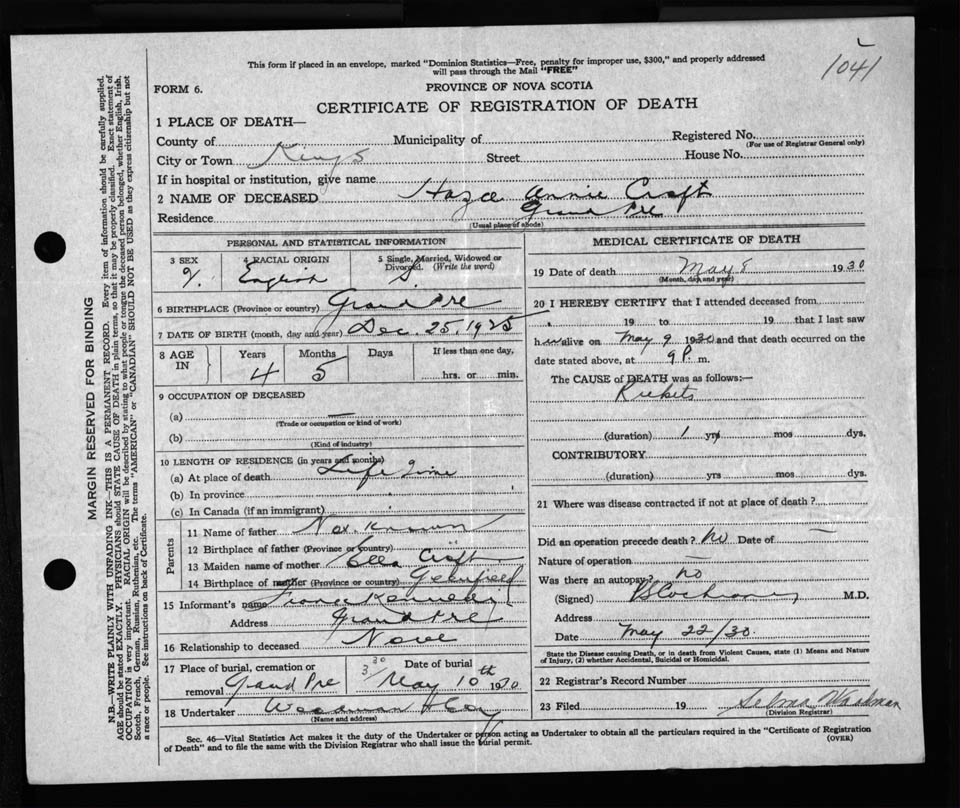 This form if placed in an envelope, marked "Dominion Statistics—Free, penalty for improper use, $300," and properly addressed
will pass through the Mail "FREE"
1041
FORM 6.
PROVINCE OF NOVA SCOTIA
CERTIFICATE OF REGISTRATION OF DEATH
1 PLACE OF DEATH—
County of Municipality of Registered No.
(For use of Registrar General only)
City or Town Kings Street House No.
If in hospital or institution, give name
2 NAME OF DECEASED Annie Croft
Residence Grand Pre
(Usual place of abode)
PERSONAL AND STATISTICAL INFORMATION
3 SEX 4 RACIAL ORIGIN 5 Single, Married, Widowed or Divorced. (Write the word)
English S.
6 BIRTHPLACE (Province or country) Grand Pre
7 DATE OF BIRTH (month, day and year) Dec. 25. 1925
8 AGE IN Years Months Days If less than one day,
4 5 hrs. or min.
9 OCCUPATION OF DECEASED
(a) —
(Trade or occupation or kind of work)
(b)
(Kind of industry)
10 LENGTH OF RESIDENCE (in years and months)
(a) At place of death Life Time
(b) In province
(c) In Canada (if an immigrant)
Parents
11 Name of father Not Known
12 Birthplace of father (Province or country)
13 Maiden name of mother Ella Croft
14 Birthplace of mother (Province or country) Greenfield
15 Informant's name Kennedy
Address Grand Pre
16 Relationship to deceased None
17 Place of burial, cremation or removal Grand Pre
Date of burial 3 30 May 10th 1930
18 Undertaker
(Name and address)
MEDICAL CERTIFICATE OF DEATH
19 Date of death May 8 1930
(Month, day and year)
20 I HEREBY CERTIFY that I attended deceased from
19 to 19 that I last saw
h alive on May 9 1930 and that death occurred on the
date stated above, at 9 P. m.
The CAUSE of DEATH was as follows:—
Rickets
(duration) 1 yrs mos dys.
CONTRIBUTORY
(duration) yrs mos dys.
21 Where was disease contracted if not at place of death?
Did an operation precede death? no Date of —
Nature of operation —
Was there an autopsy? no
(Signed) M.D.
Address
Date May 22/30.
State the Disease causing Death, or in death from Violent Causes, state (1) Means and Nature
of Injury, (2) whether Accidental, Suicidal or Homicidal.
22 Registrar's Record Number
23 Filed 19 Woodman
(Division Registrar)
Sec. 46—Vital Statistics Act makes it the duty of the Undertaker or person acting as Undertaker to obtain all the particulars required in the "Certificate of Registration
of Death" and to file the same with the Division Registrar who shall issue the burial permit.
(OVER)
MARGIN RESERVED FOR BINDING
N.B.—WRITE PLAINLY WITH UNFADING INK—THIS IS A PERMANENT RECORD. Every item of information should be carefully supplied.
AGE should be stated EXACTLY. PHYSICIANS should STATE CAUSE OF DEATH in plain terms, so that it may be properly classified. Exact statement of
OCCUPATION is very important. RACIAL ORIGIN will be described by stating to what people or tongue the deceased person belonged, whether English, Irish,
Scotch, French, German, Russian, Ruthenian, etc. The terms "AMERICAN" or "CANADIAN" SHOULD NOT BE USED as they express citizenship but not
a race or people. See instructions on back of Certificate.